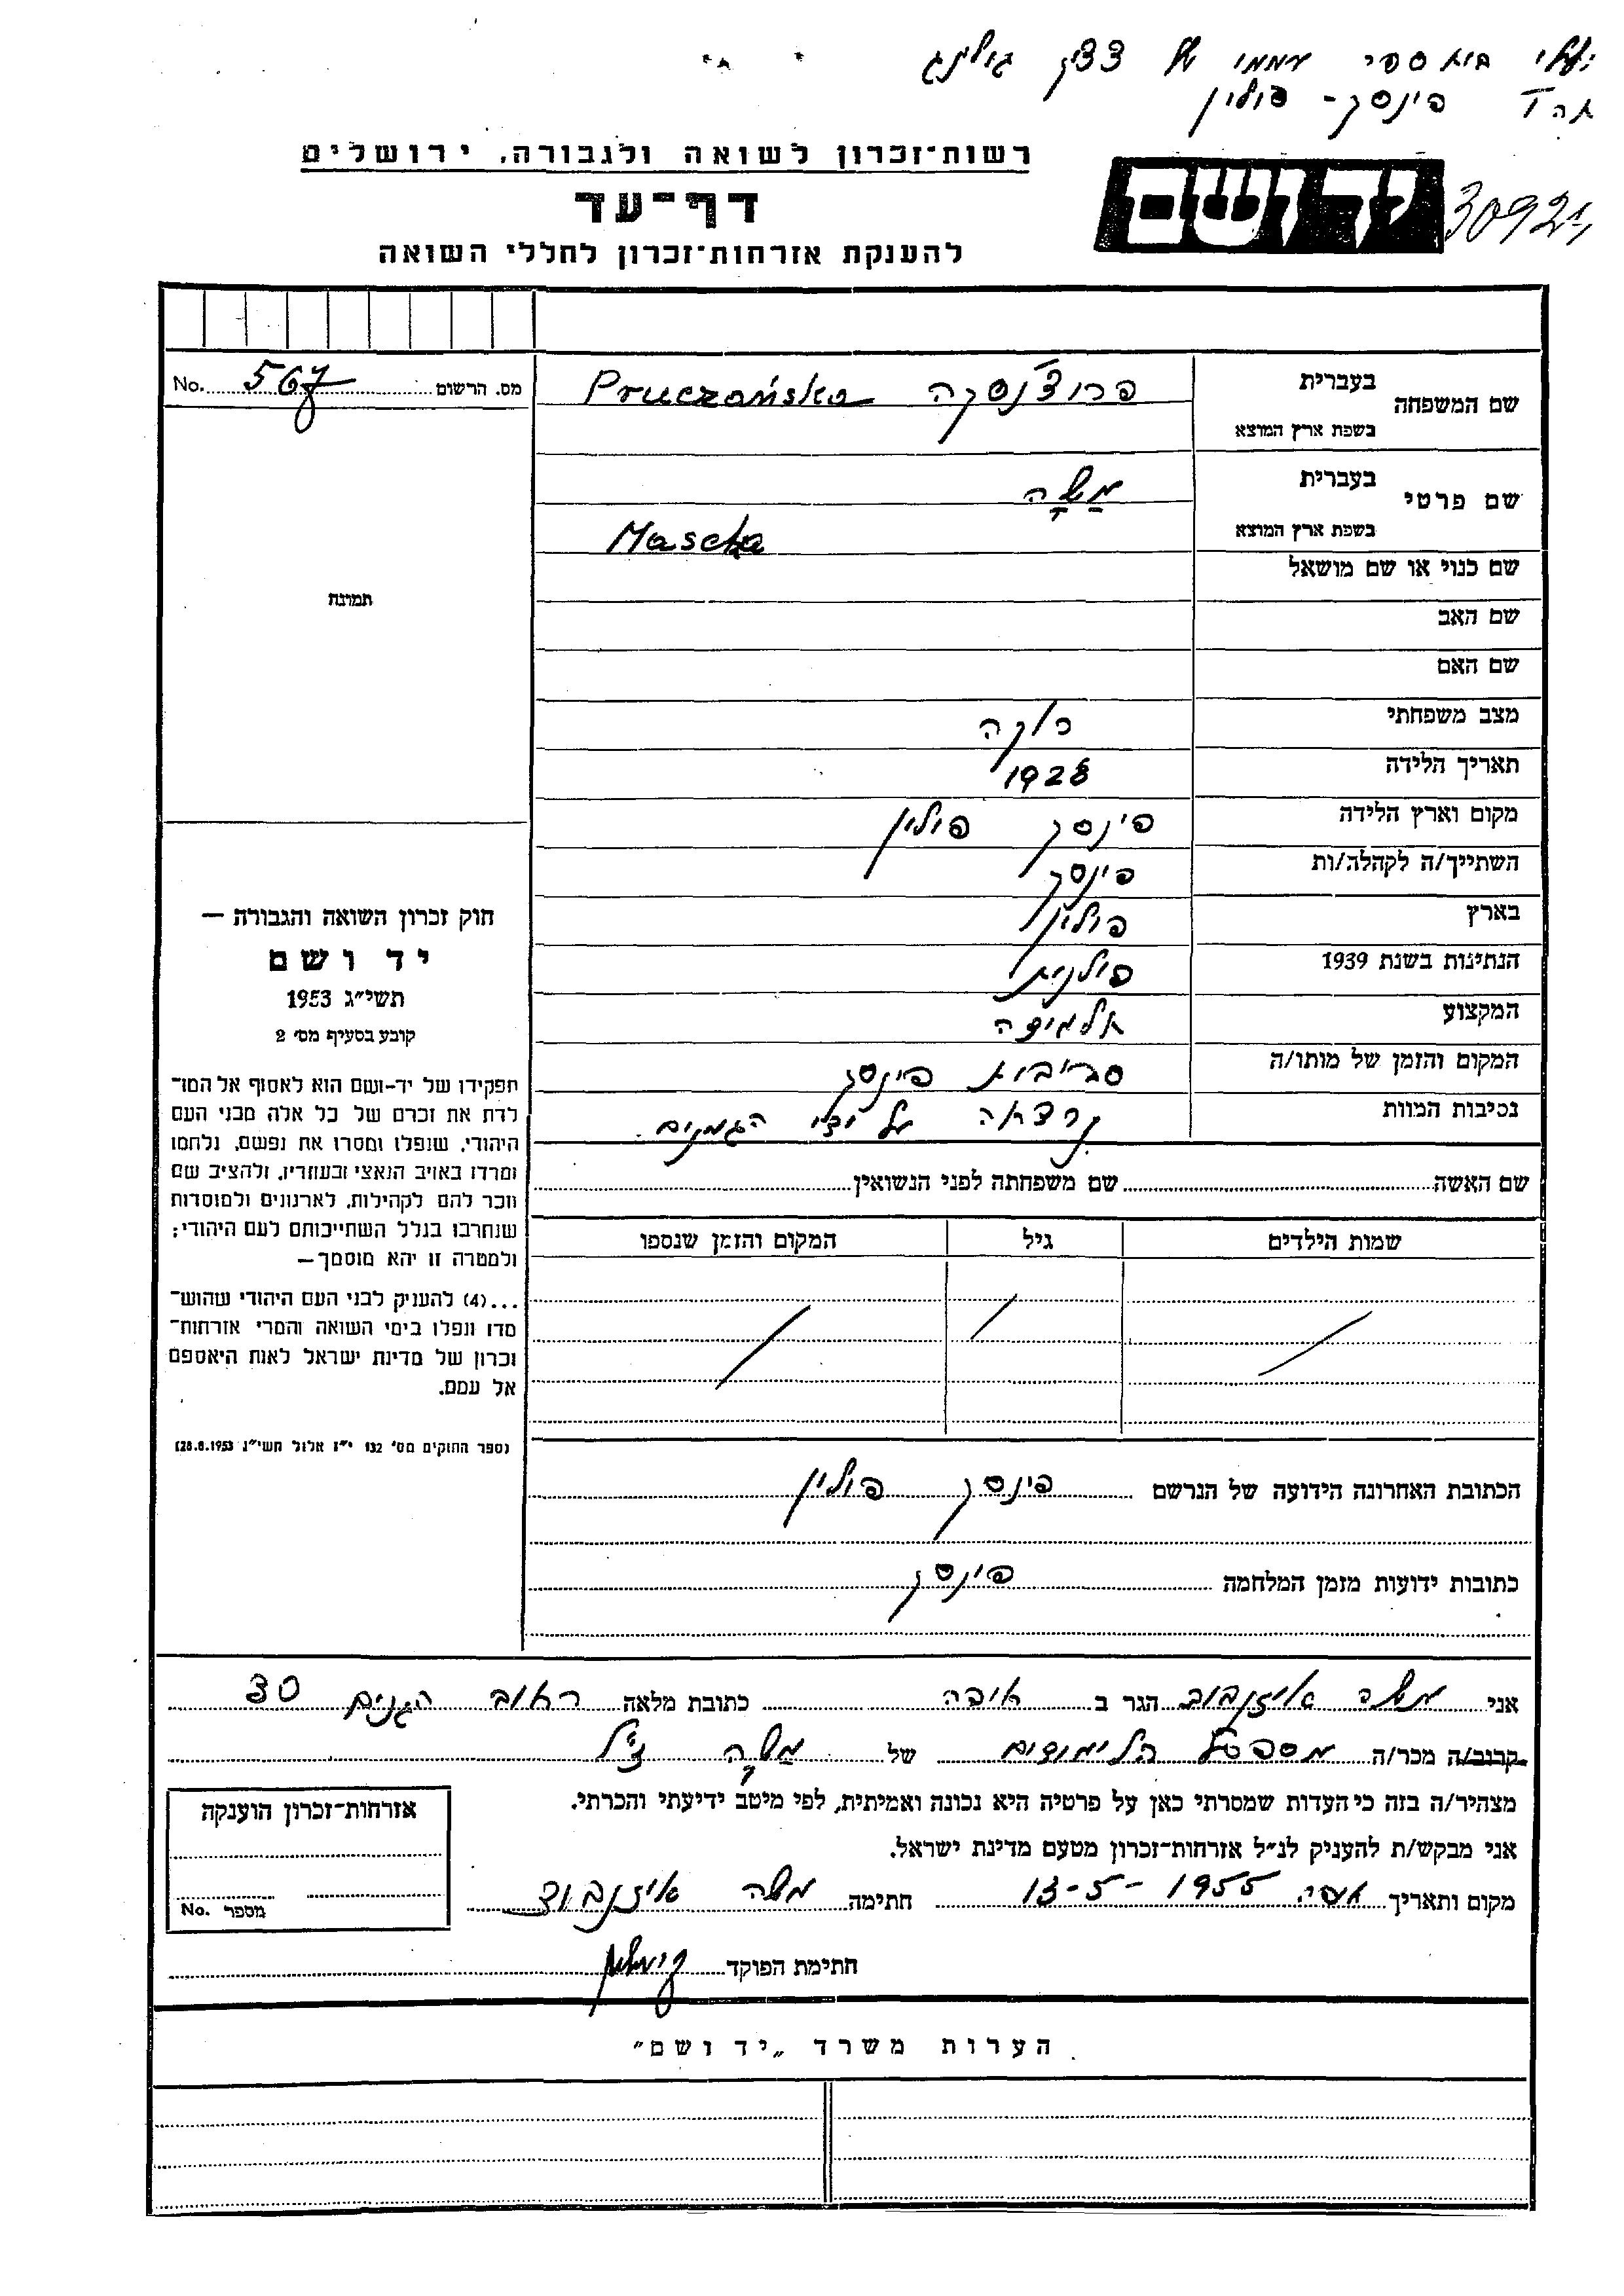 בית ספר עממי של
פינסק - פולין
רשות־זכרון לשואה ולגבורה, ירושלים
דף־עד
ידושם
להענקת אזרחות־זכרון לחללי השואה
מס. הרשום 567 No.
שם המשפחה בעברית פרוצ'נסקה Pruczańska
בשפת ארץ המוצא
שם פרטי בעברית מַשָה
בשפת ארץ המוצא Mascha
תמונה
שם כנוי או שם מושאל
שם האב
שם האם
מצב משפחתי רוקה
תאריך הלידה 1928
מקום וארץ הלידה פינסק פולין
השתייך/ה לקהלה/ות פינסק
בארץ פולין
הנתינות בשנת 1939 פולנית
המקצוע תלמידה
המקום והזמן של מותו/ה סביבות פינסק
נסיבות המוות נרצחה על ידי הגרמנים.
שם האשה שם משפחתה לפני הנשואין
שמות הילדים גיל המקום והזמן שנספו
הכתובת האחרונה הידועה של הנרשם פינסק פולין
כתובות ידועות מזמן המלחמה פינסק
חוק זכרון השואה והגבורה —
יד ושם
תשי״ג 1953
קובע בסעיף מס׳ 2
תפקידו של יד־ושם הוא לאסוף אל המו־
לדת את זכרם של כל אלה מבני העם
היהודי, שנפלו ומסרו את נפשם, נלחמו
ומרדו באויב הנאצי ובעוזריו, ולהציב שם
וזכר להם לקהילות, לארגונים ולמוסדות
שנחרבו בגלל השתייכותם לעם היהודי;
ולמטרה זו יהא מוסמך—
...(4) להעניק לבני העם היהודי שהוש־
מדו ונפלו בימי השואה והמרי אזרחות־
זכרון של מדינת ישראל לאות היאספם
אל עמם.
(ספר החוקים מס׳ 132 י״ז אלול תשי״ג 28.8.1953)
אני משה איזנבוד הגר ב כתובת מלאה רחוב הגנים 30
קרוב/ה מכר/ה מספסל הלימודים של מַשָה ז"ל
מצהיר/ה בזה כי העדות שמסרתי כאן על פרטיה היא נכונה ואמיתית, לפי מיטב ידיעתי והכרתי.
אני מבקש/ת להעניק לנ״ל אזרחות־זכרון מטעם מדינת ישראל.
מקום ותאריך 13-5-1955 חתימה משה איזנבוד
חתימת הפוקד
אזרחות־זכרון הוענקה
מספר No.
הערות משרד „יד ושם"